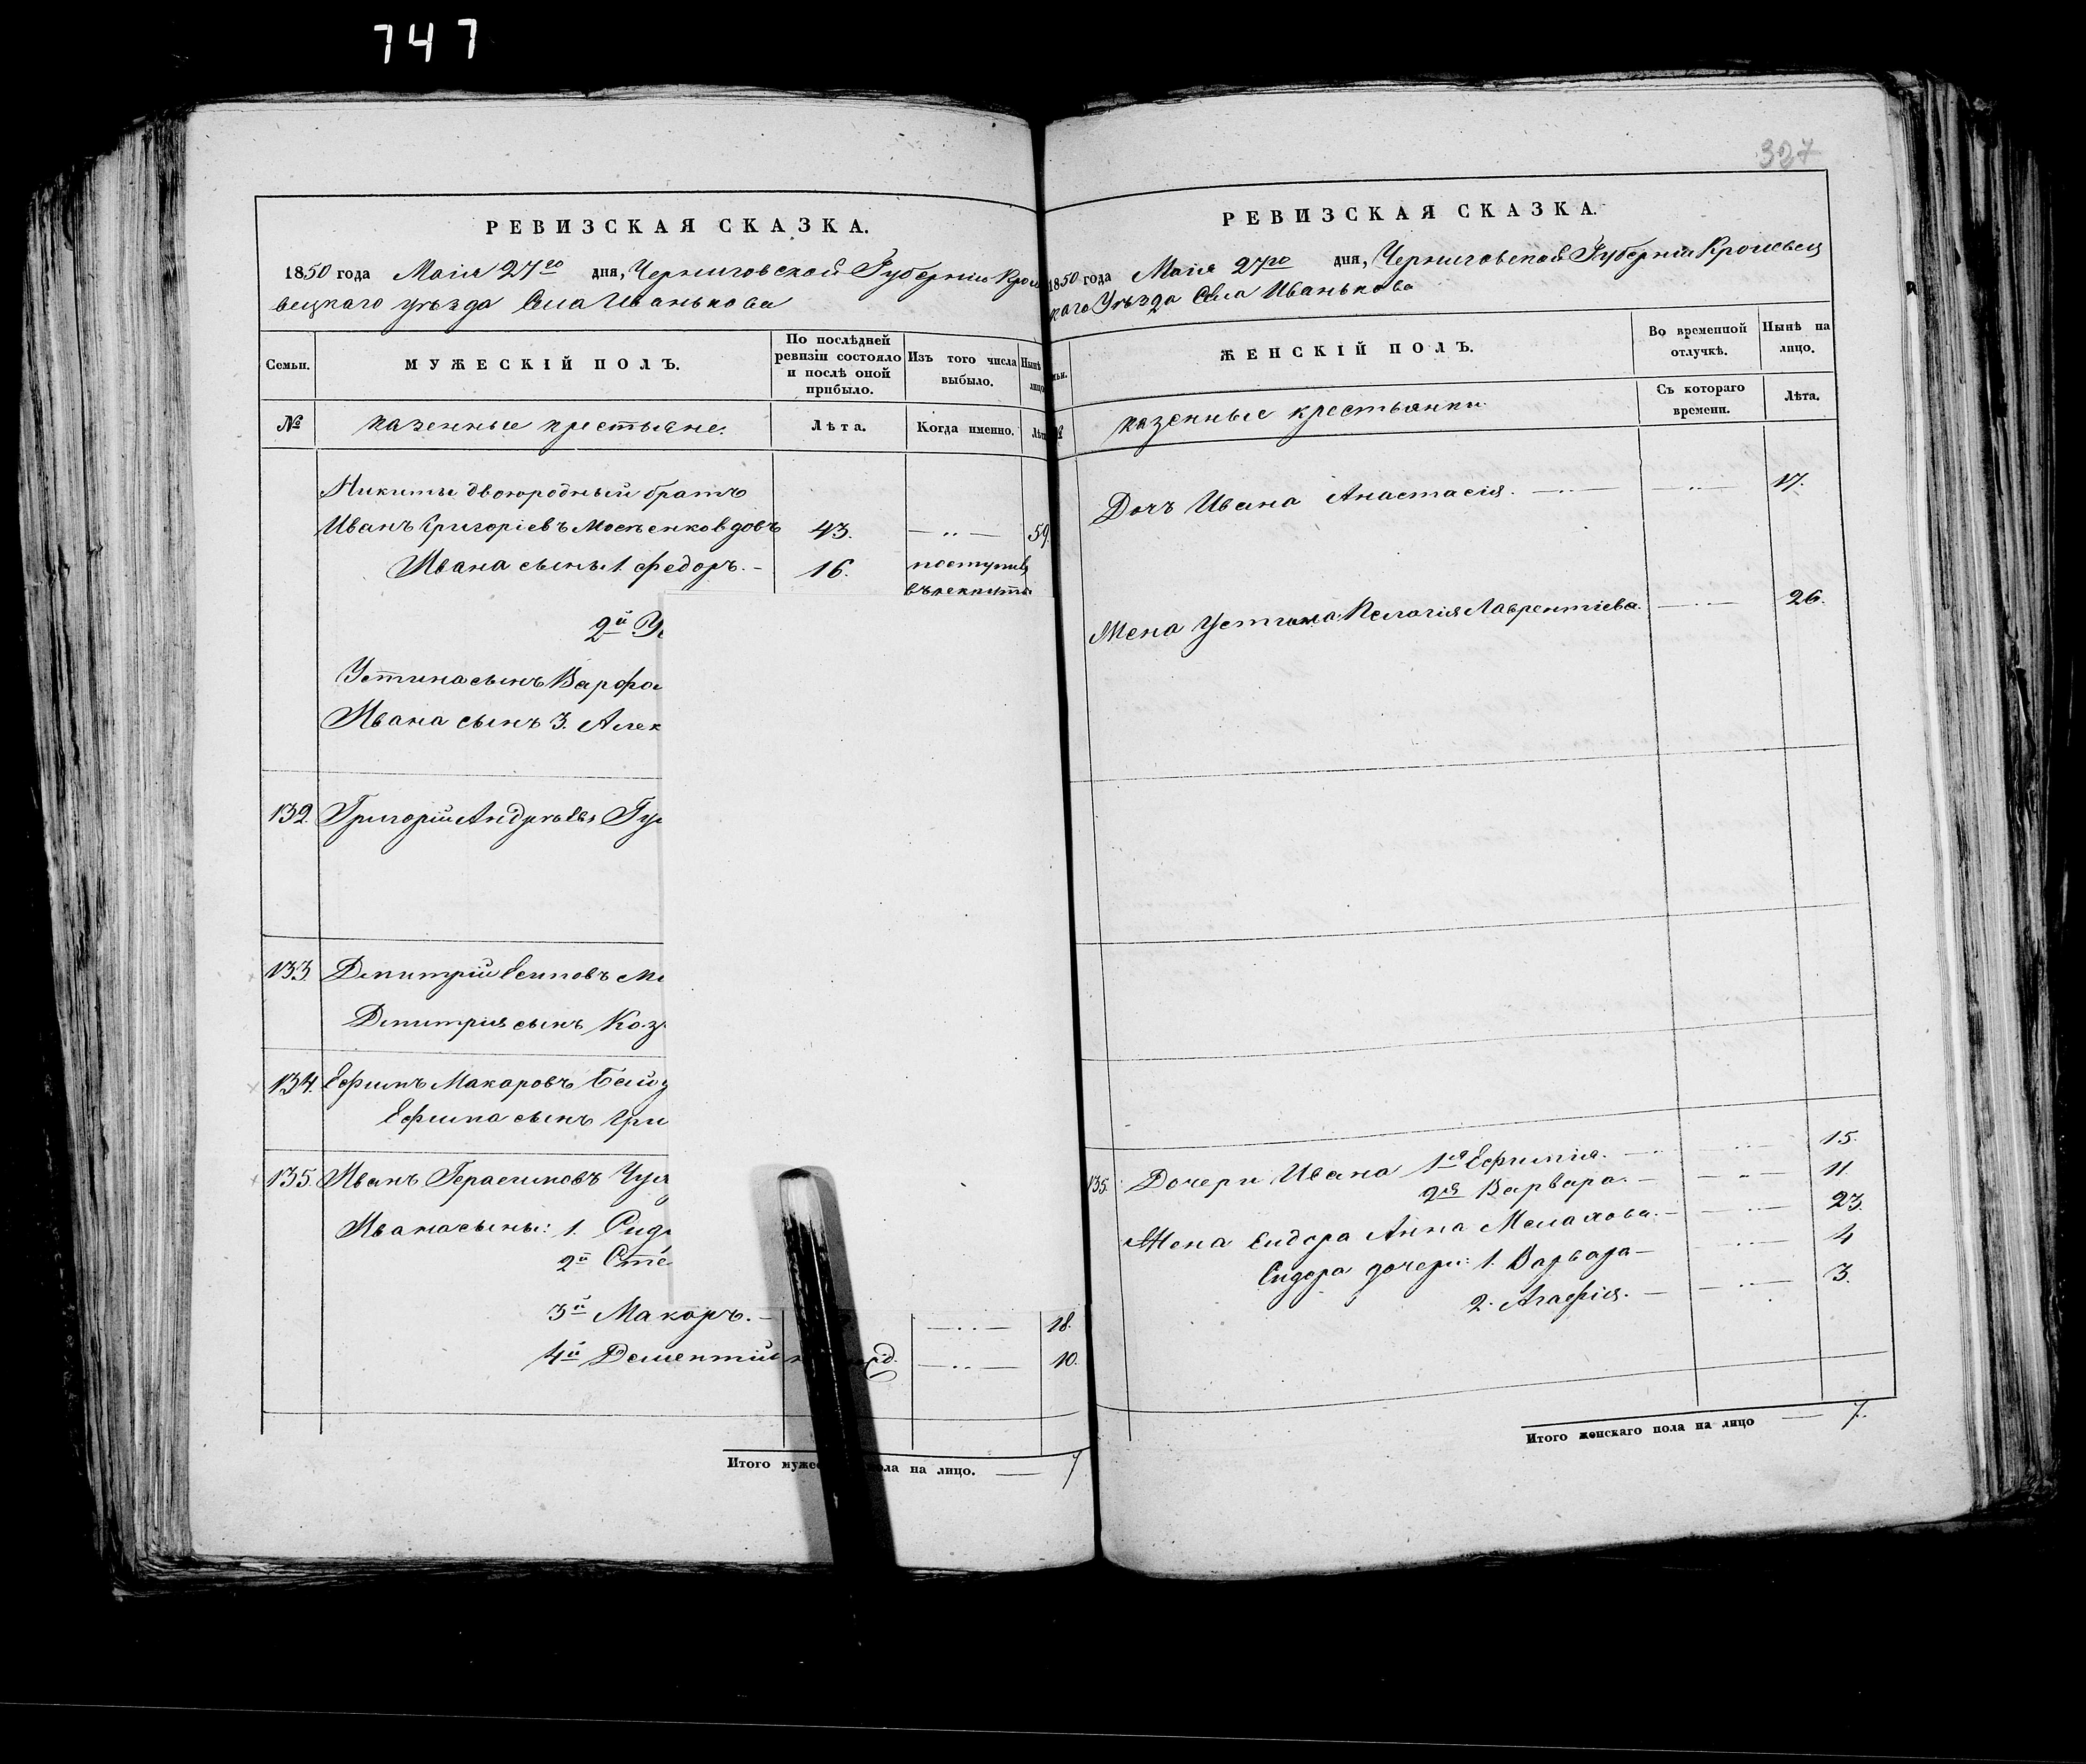 747
РЕВИЗСКАЯ СКАЗКА.
1850 года Маія 27го дня, Черниговской Губерніи Кроле
вецкаго уѣзда Села Иванькова
Семьи.
МУЖЕСКІЙ ПОЛЪ.
По послѣдней ревизіи состояло и послѣ оной прибыло.
Изъ того числа выбыло.
Нынѣ лицо
№
казенные крестьяне.
Лѣта.
Когда именно.
Лѣт
Никиты двоюродный братъ
Иванъ Григоріевъ вдовъ 43. 59.
Ивана сыны 1. Федоръ. 16. поступилъ
въ рекруты
2й Ус
Устина сынъ Варфо
Ивана сынъ 3. Алек
132. Григорій Андреевъ Гу
133. Дмитрій Есиповъ М
Дмитрія сынъ Коз
134. Ефимъ Макаровъ Бай
Ефима сынъ Гри
135. Иванъ Герасимовъ Чу
Ивана сыны: 1. Сид
2й Сте
3й Макаръ. 18.
4й Дементій 10.
Итого муже пола на лицо. 7
327
РЕВИЗСКАЯ СКАЗКА.
1850 года Маія 27го дня, Черниговской Губерніи Кролевец
каго Уѣзда Села Иванькова
мьи.
ЖЕНСКІЙ ПОЛЪ.
Во временной отлучкѣ.
Нынѣ на лицо.
№
казенные крестьянки
Съ котораго времени.
Лѣта.
Дочь Ивана Анастасія. 17.
Жена Устина Пелагія Лаврентіева. 26.
135. Дочери Ивана 1я Ефимія. 15.
2я Варвара. 11.
Жена Сидора Анна Малахова. 23.
Сидора дочери: 1. Варвара 4
2. Агафія. 3.
Итого женскаго пола на лицо 7.